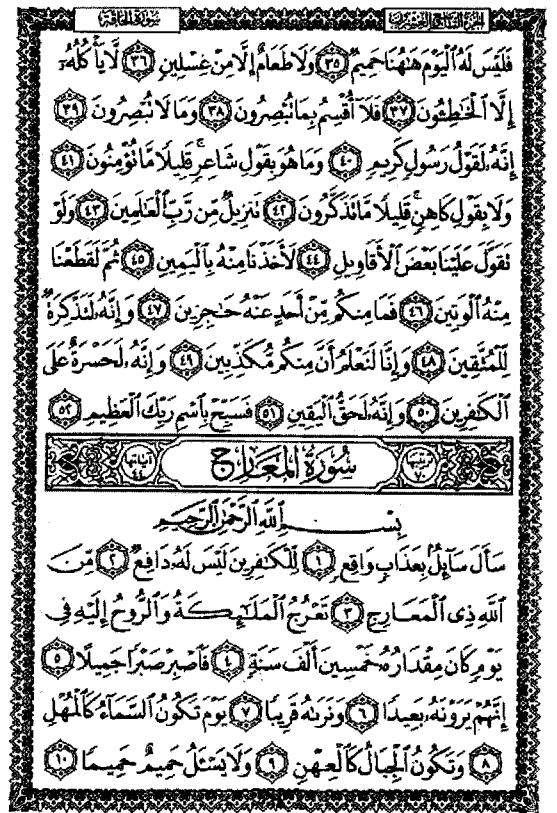 سُورَةُ الحَاقَّة
الجُزْءُ التَّاسِعُ وَالعِشْرُونَ
فَلَيْسَ لَهُ ٱلْيَوْمَ هَٰهُنَا حَمِيمٌ ٣٥ وَلَا طَعَامٌ إِلَّا مِنْ غِسْلِينٍ ٣٦ لَّا يَأْكُلُهُۥٓ
إِلَّا ٱلْخَٰطِـُٔونَ ٣٧ فَلَآ أُقْسِمُ بِمَا تُبْصِرُونَ ٣٨ وَمَا لَا تُبْصِرُونَ ٣٩
إِنَّهُۥ لَقَوْلُ رَسُولٍ كَرِيمٍ ٤٠ وَمَا هُوَ بِقَوْلِ شَاعِرٍ ۚ قَلِيلًا مَّا تُؤْمِنُونَ ٤١
وَلَا بِقَوْلِ كَاهِنٍ ۚ قَلِيلًا مَّا تَذَكَّرُونَ ٤٢ تَنزِيلٌ مِّن رَّبِّ ٱلْعَٰلَمِينَ ٤٣ وَلَوْ
تَقَوَّلَ عَلَيْنَا بَعْضَ ٱلْأَقَاوِيلِ ٤٤ لَأَخَذْنَا مِنْهُ بِٱلْيَمِينِ ٤٥ ثُمَّ لَقَطَعْنَا
مِنْهُ ٱلْوَتِينَ ٤٦ فَمَا مِنكُم مِّنْ أَحَدٍ عَنْهُ حَٰجِزِينَ ٤٧ وَإِنَّهُۥ لَتَذْكِرَةٌ
لِّلْمُتَّقِينَ ٤٨ وَإِنَّا لَنَعْلَمُ أَنَّ مِنكُم مُّكَذِّبِينَ ٤٩ وَإِنَّهُۥ لَحَسْرَةٌ عَلَى
ٱلْكَٰفِرِينَ ٥٠ وَإِنَّهُۥ لَحَقُّ ٱلْيَقِينِ ٥١ فَسَبِّحْ بِٱسْمِ رَبِّكَ ٱلْعَظِيمِ ٥٢
ترتيبها ٧٠ سُورَةُ المَعَارِجِ آياتها ٤٤
بِسْمِ ٱللَّهِ ٱلرَّحْمَٰنِ ٱلرَّحِيمِ
سَأَلَ سَآئِلٌۢ بِعَذَابٍ وَاقِعٍ ١ لِّلْكَٰفِرِينَ لَيْسَ لَهُۥ دَافِعٌ ٢ مِّنَ
ٱللَّهِ ذِى ٱلْمَعَارِجِ ٣ تَعْرُجُ ٱلْمَلَٰٓئِكَةُ وَٱلرُّوحُ إِلَيْهِ فِى
يَوْمٍ كَانَ مِقْدَارُهُۥ خَمْسِينَ أَلْفَ سَنَةٍ ٤ فَٱصْبِرْ صَبْرًا جَمِيلًا ٥
إِنَّهُمْ يَرَوْنَهُۥ بَعِيدًا ٦ وَنَرَىٰهُ قَرِيبًا ٧ يَوْمَ تَكُونُ ٱلسَّمَآءُ كَٱلْمُهْلِ
٨ وَتَكُونُ ٱلْجِبَالُ كَٱلْعِهْنِ ٩ وَلَا يَسْـَٔلُ حَمِيمٌ حَمِيمًا ١٠